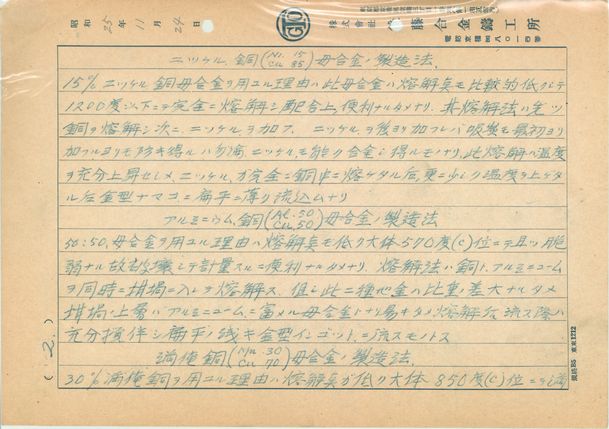 昭和 25年 11月 24日
株式會社 藤合金鑄工所
ニッケル、銅(Ni.15 Cu.85)母合金ノ製造法.
15%ニッケル銅母合金ヲ用ユル理由ハ此母合金ハ熔解点モ比較的低クシテ
1200度以下ニテ完全ニ熔解シ配合上便利ナルタメナリ.其熔解法ハ先ヅ
銅ヲ熔解シ次ニニッケルヲ加フ.ニッケルヲ後ヨリ加フレバ吸気モ最初ヨリ
加フルヨリモ防ギ得ルハ勿論ニッケルモ能ク合金シ得ルモノナリ.此熔解ハ温度
ヲ充分上昇セシメニッケルガ完全ニ銅中ニ熔ケタル后更ニ少シク温度ヲ上ゲタ
ル后金型ナマコニ扁平ニ薄ク流込ムナリ
アルミニウム、銅(Al.50 Cu.50)母合金ノ製造法
50:50.母合金ヲ用ユル理由ハ熔解点モ低ク大体570度(C)位ニテ且ツ脆
弱ナル故破壊シテ計量スルニ便利ナルタメナリ.熔解法ハ銅トアルミニューム
ヲ同時ニ坩堝ニ入レテ熔解ス.但シ此二種地金ハ比重ノ差大ナルタメ
坩堝ノ上層ハアルミニュームニ富メル母合金トナリ易キタメ熔解后流ス際ハ
充分攪伴シ扁平ノ浅キ金型インゴットニ流スモノトス
満俺銅(Mn.30 Cu.70)母合金ノ製造法.
30%満俺銅ヲ用ユル理由ハ熔解点ガ低ク大体850度(C)位ニテ
(2.)